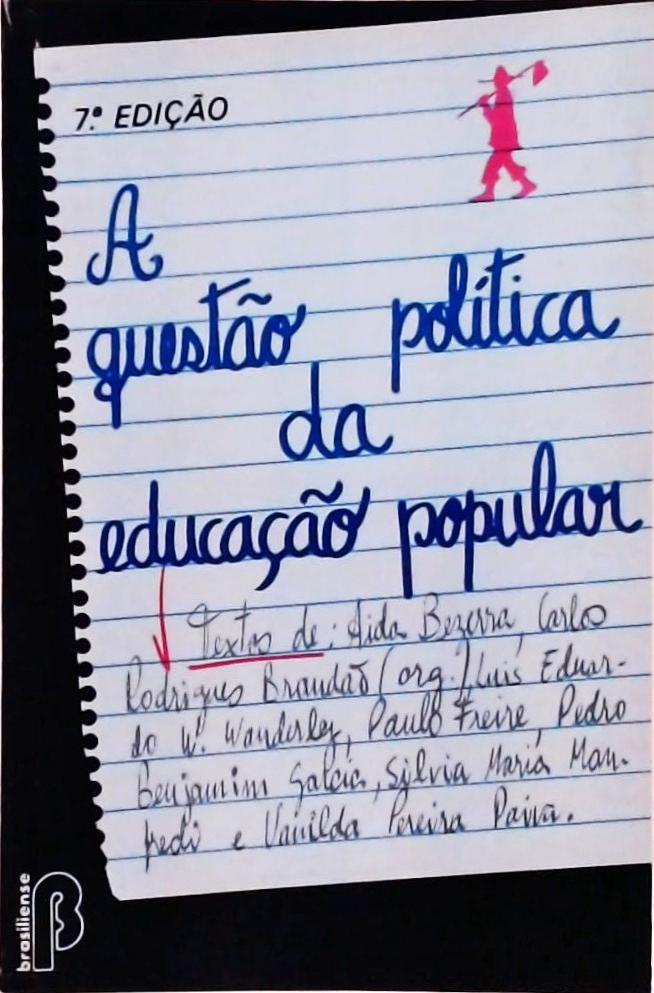 7.ª EDIÇÃO
A
questão política
da
educação popular
Textos de: Aida Bezerra, Carlos
Rodrigues Brandão (org.) Luís Eduar-
do W. Wanderley, Paulo Freire, Pedro
Benjamim Garcia, Silvia Maria Man-
fredi e Vanilda Pereira Paiva.
brasiliense